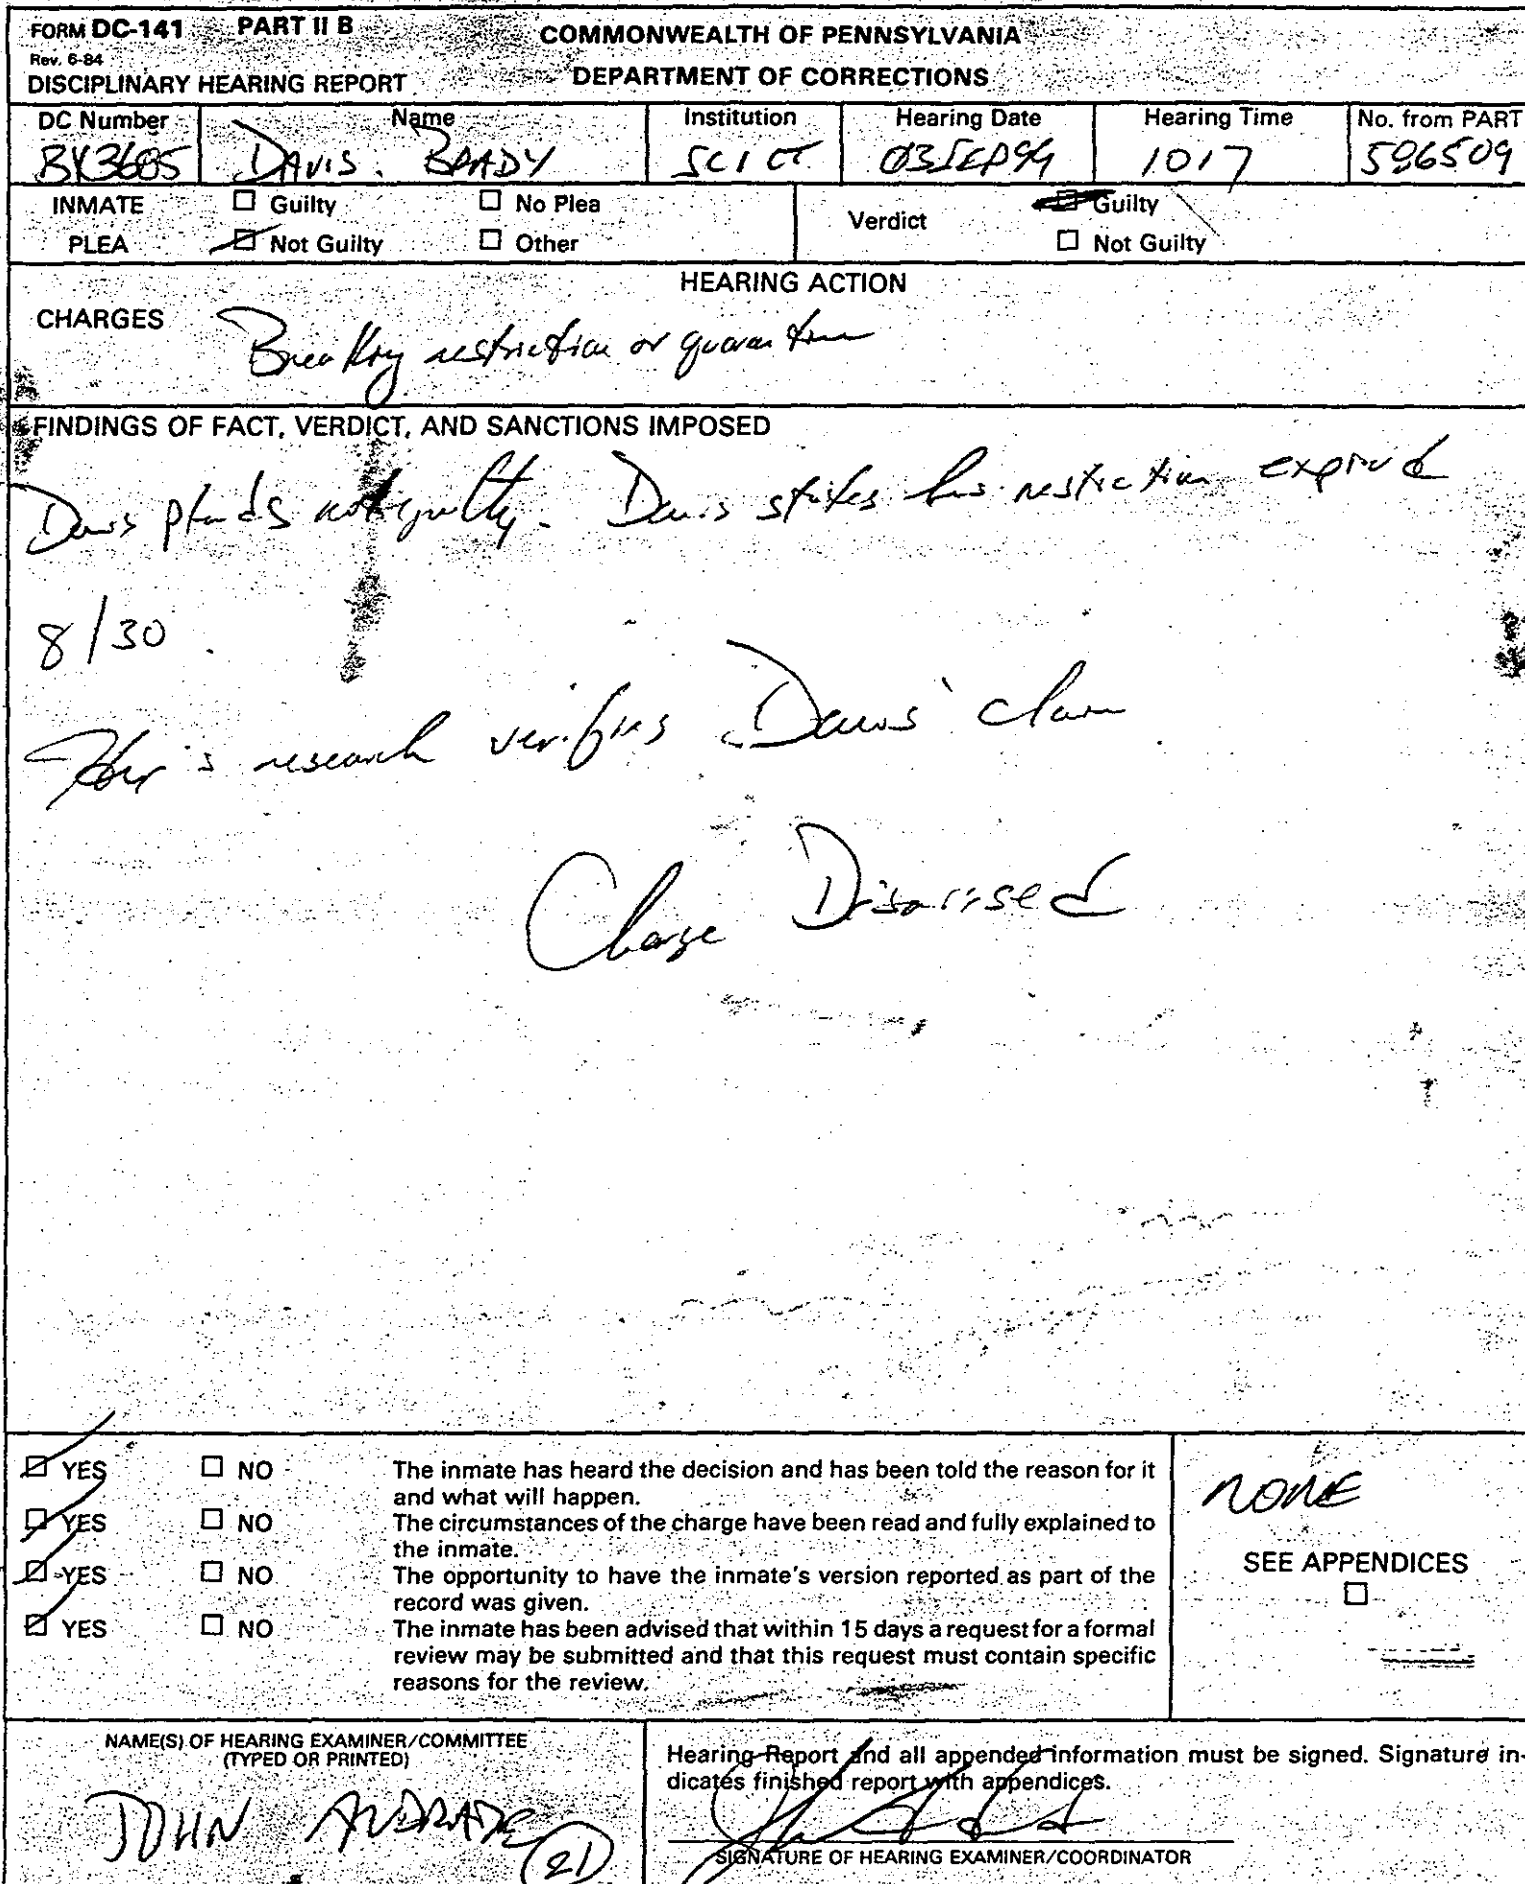 FORM DC-141 PART II B
Rev. 6-84
DISCIPLINARY HEARING REPORT
COMMONWEALTH OF PENNSYLVANIA
DEPARTMENT OF CORRECTIONS
DC Number Name Institution Hearing Date Hearing Time No. from PART
DAVIS. BRADY 1017 596509
INMATE
PLEA
Guilty No Plea
Not Guilty Other
Verdict
Guilty
Not Guilty
HEARING ACTION
CHARGES
Breaking restriction or quarantine
FINDINGS OF FACT, VERDICT, AND SANCTIONS IMPOSED
Davis pleads not guilty. Davis states his restriction expired
8/30
research verifies Davis' claim
Charge Dismissed
YES NO The inmate has heard the decision and has been told the reason for it
and what will happen.
YES NO The circumstances of the charge have been read and fully explained to
the inmate.
YES NO The opportunity to have the inmate's version reported as part of the
record was given.
YES NO The inmate has been advised that within 15 days a request for a formal
review may be submitted and that this request must contain specific
reasons for the review.
NONE
SEE APPENDICES
NAME(S) OF HEARING EXAMINER/COMMITTEE
(TYPED OR PRINTED)
JOHN ANDRADE
21
Hearing Report and all appended information must be signed. Signature in-
dicates finished report with appendices.
SIGNATURE OF HEARING EXAMINER/COORDINATOR